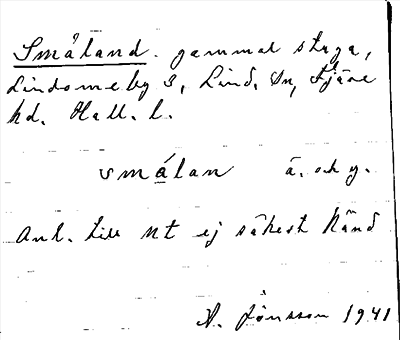 Småland. gammal stuga,
Lindomeby 3, Lind. sn, Fjäre
hd. Hall. l.
smålan ä. och y.
Anl. till nt ej säkert känd
A. Jönsson 1941